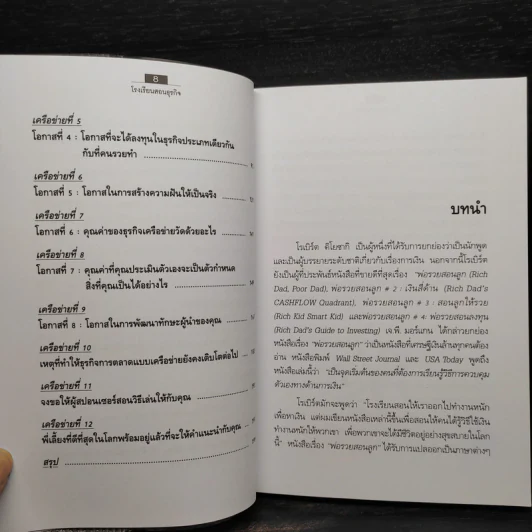 8
โรงเรียนสอนธุรกิจ
เครือข่ายที่ 5
โอกาสที่ 4 : โอกาสที่จะได้ลงทุนในธุรกิจประเภทเดียวกัน
กับที่คนรวยทำ
เครือข่ายที่ 6
โอกาสที่ 5 : โอกาสในการสร้างความฝันให้เป็นจริง
เครือข่ายที่ 7
โอกาสที่ 6 : คุณค่าของธุรกิจเครือข่ายวัดด้วยอะไร
เครือข่ายที่ 8
โอกาสที่ 7 : คุณค่าที่คุณประเมินตัวเองจะเป็นตัวกำหนด
สิ่งที่คุณเป็นได้อย่างไร
เครือข่ายที่ 9
โอกาสที่ 8 : โอกาสในการพัฒนาทักษะผู้นำของคุณ
เครือข่ายที่ 10
เหตุที่ทำให้ธุรกิจการตลาดแบบเครือข่ายยังคงเติบโตต่อไป
เครือข่ายที่ 11
จงขอให้ผู้สปอนเซอร์สอนวิธีเล่นให้กับคุณ
เครือข่ายที่ 12
พี่เลี้ยงที่ดีที่สุดในโลกพร้อมอยู่แล้วที่จะให้คำแนะนำกับคุณ
สรุป
บทนำ
โรเบิร์ต คิโยซากิ เป็นผู้หนึ่งที่ได้รับการยกย่องว่าเป็นนักพูด
และเป็นผู้บรรยายระดับชาติเกี่ยวกับเรื่องการเงิน นอกจากนี้โรเบิร์ต
ยังเป็นผู้ที่ประพันธ์หนังสือที่ขายดีที่สุดเรื่อง "พ่อรวยสอนลูก (Rich
Dad, Poor Dad), พ่อรวยสอนลูก # 2 : เงินสี่ด้าน (Rich Dad's
CASHFLOW Quadrant), พ่อรวยสอนลูก # 3 : สอนลูกให้รวย
(Rich Kid Smart Kid) และพ่อรวยสอนลูก #4 พ่อรวยสอนลงทุน
(Rich Dad's Guide to Investing) เจ.พี. มอร์แกน ได้กล่าวยกย่อง
หนังสือเรื่อง "พ่อรวยสอนลูก" ว่าเป็นหนังสือที่เศรษฐีเงินล้านทุกคนต้อง
อ่าน หนังสือพิมพ์ Wall Street Journal และ USA Today พูดถึง
หนังสือเล่มนี้ว่า "เป็นจุดเริ่มต้นของคนที่ต้องการเรียนรู้วิธีการควบคุม
ตัวเองทางด้านการเงิน"
โรเบิร์ตมักจะพูดว่า "โรงเรียนสอนให้เราออกไปทำงานหนัก
เพื่อหาเงิน แต่ผมเขียนหนังสือเหล่านี้ขึ้นเพื่อสอนให้คนได้รู้วิธีใช้เงิน
ทำงานหนักให้พวกเขา เพื่อพวกเขาจะได้มีชีวิตอยู่อย่างสุขสบายในโลก
นี้" หนังสือเรื่อง "พ่อรวยสอนลูก" ได้รับการแปลออกเป็นภาษาต่างๆ